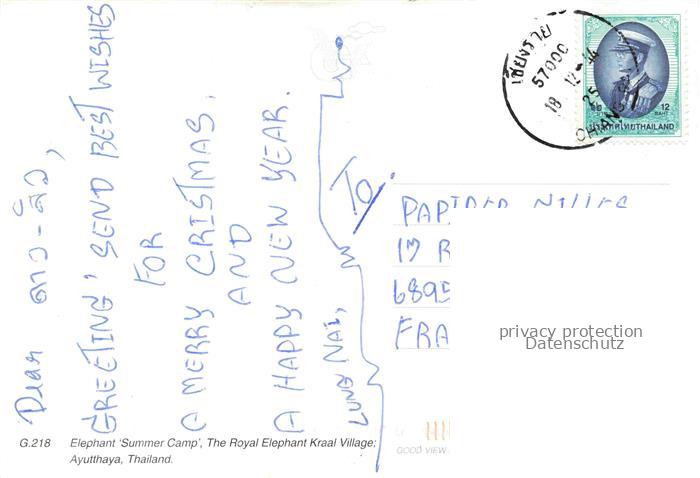 Dear ดาว-ลิว,
GREETING' SEND BEST WISHES
FOR
A MERRY CRISTMAS,
AND
A HAPPY NEW YEAR.
LUNG NAI,
To.
PAP
17 R
6895
FRA
เชียงราย
57000
18 12 44
25
CHIANG
12
BAHT
THAILAND
privacy protection
Datenschutz
G.218 Elephant ‘Summer Camp’, The Royal Elephant Kraal Village;
Ayutthaya, Thailand.
GOOD VIEW